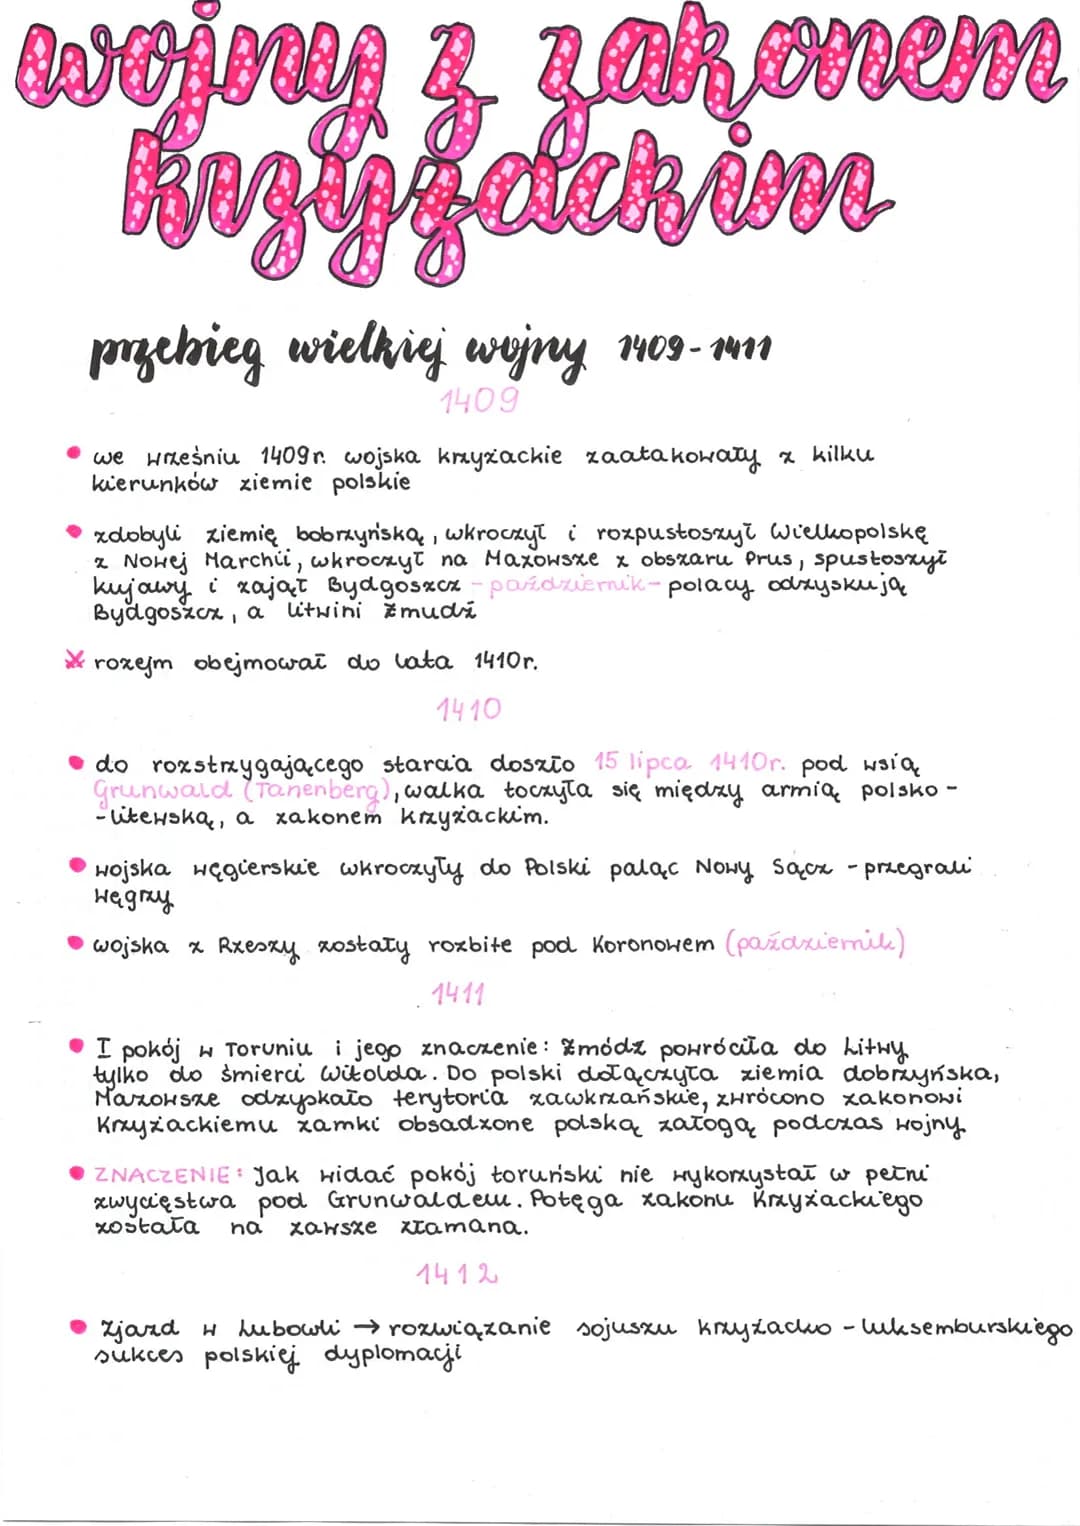 wojny z zakonem
krzyżackim
przebieg wielkiej wojny 1409-1411
1409
• we wrześniu 1409r. wojska krzyżackie zaatakowały z kilku
kierunków ziemie polskie
• zdobyli ziemię bobrzyńską, wkroczył i rozpustoszył Wielkopolskę
z Nowej Marchii, wkroczył na Mazowsze z obszaru Prus, spustoszył
kujawy i zajął Bydgoszcz - październik - polacy odzyskują
Bydgoszcz, a litwini Żmudź
rozejm obejmował do lata 1410r.
1410
• do rozstrzygającego starcia doszło 15 lipca 1410r. pod wsią
Grunwald (Tanenberg), walka toczyła się między armią polsko -
- litewską, a zakonem krzyżackim.
• wojska węgierskie wkroczyły do Polski paląc Nowy Sącz - przegrali
Węgrzy
• wojska z Rzeszy zostały rozbite pod Koronowem (październik)
1411
• I pokój w Toruniu i jego znaczenie: Żmódz powróciła do Litwy
tylko do śmierci Witolda. Do polski dołączyła ziemia dobrzyńska,
Mazowsze odzyskało terytoria zawkrzańskie, zwrócono zakonowi
Krzyżackiemu zamki obsadzone polską załogą podczas wojny
• ZNACZENIE: Jak widać pokój toruński nie wykorzystał w pełni
zwycięstwa pod Grunwaldem. Potęga zakonu Krzyżackiego
została na zawsze złamana.
1412
• Zjazd w Lubowli → rozwiązanie sojuszu krzyżacko - luksemburskiego
sukces polskiej dyplomacji